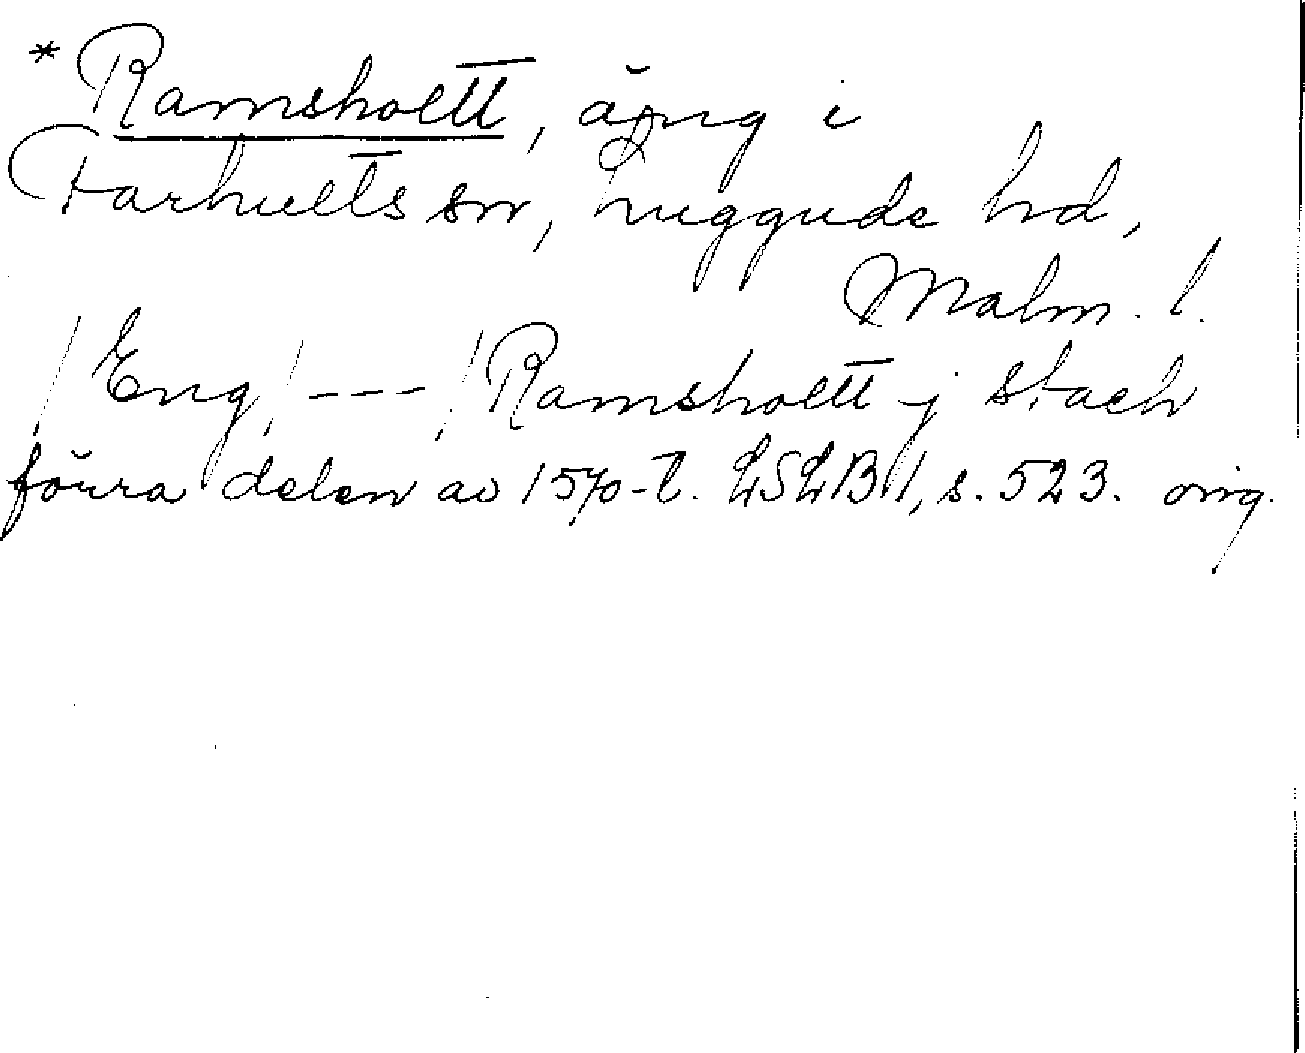 *Ramsholtt, äng i
Farhults sn, Luggude hd,
Malm. l.
/Eng/ --- /Ramsholtt j stach
förra delen av 1570-t. LSLB I, s. 523. orig.